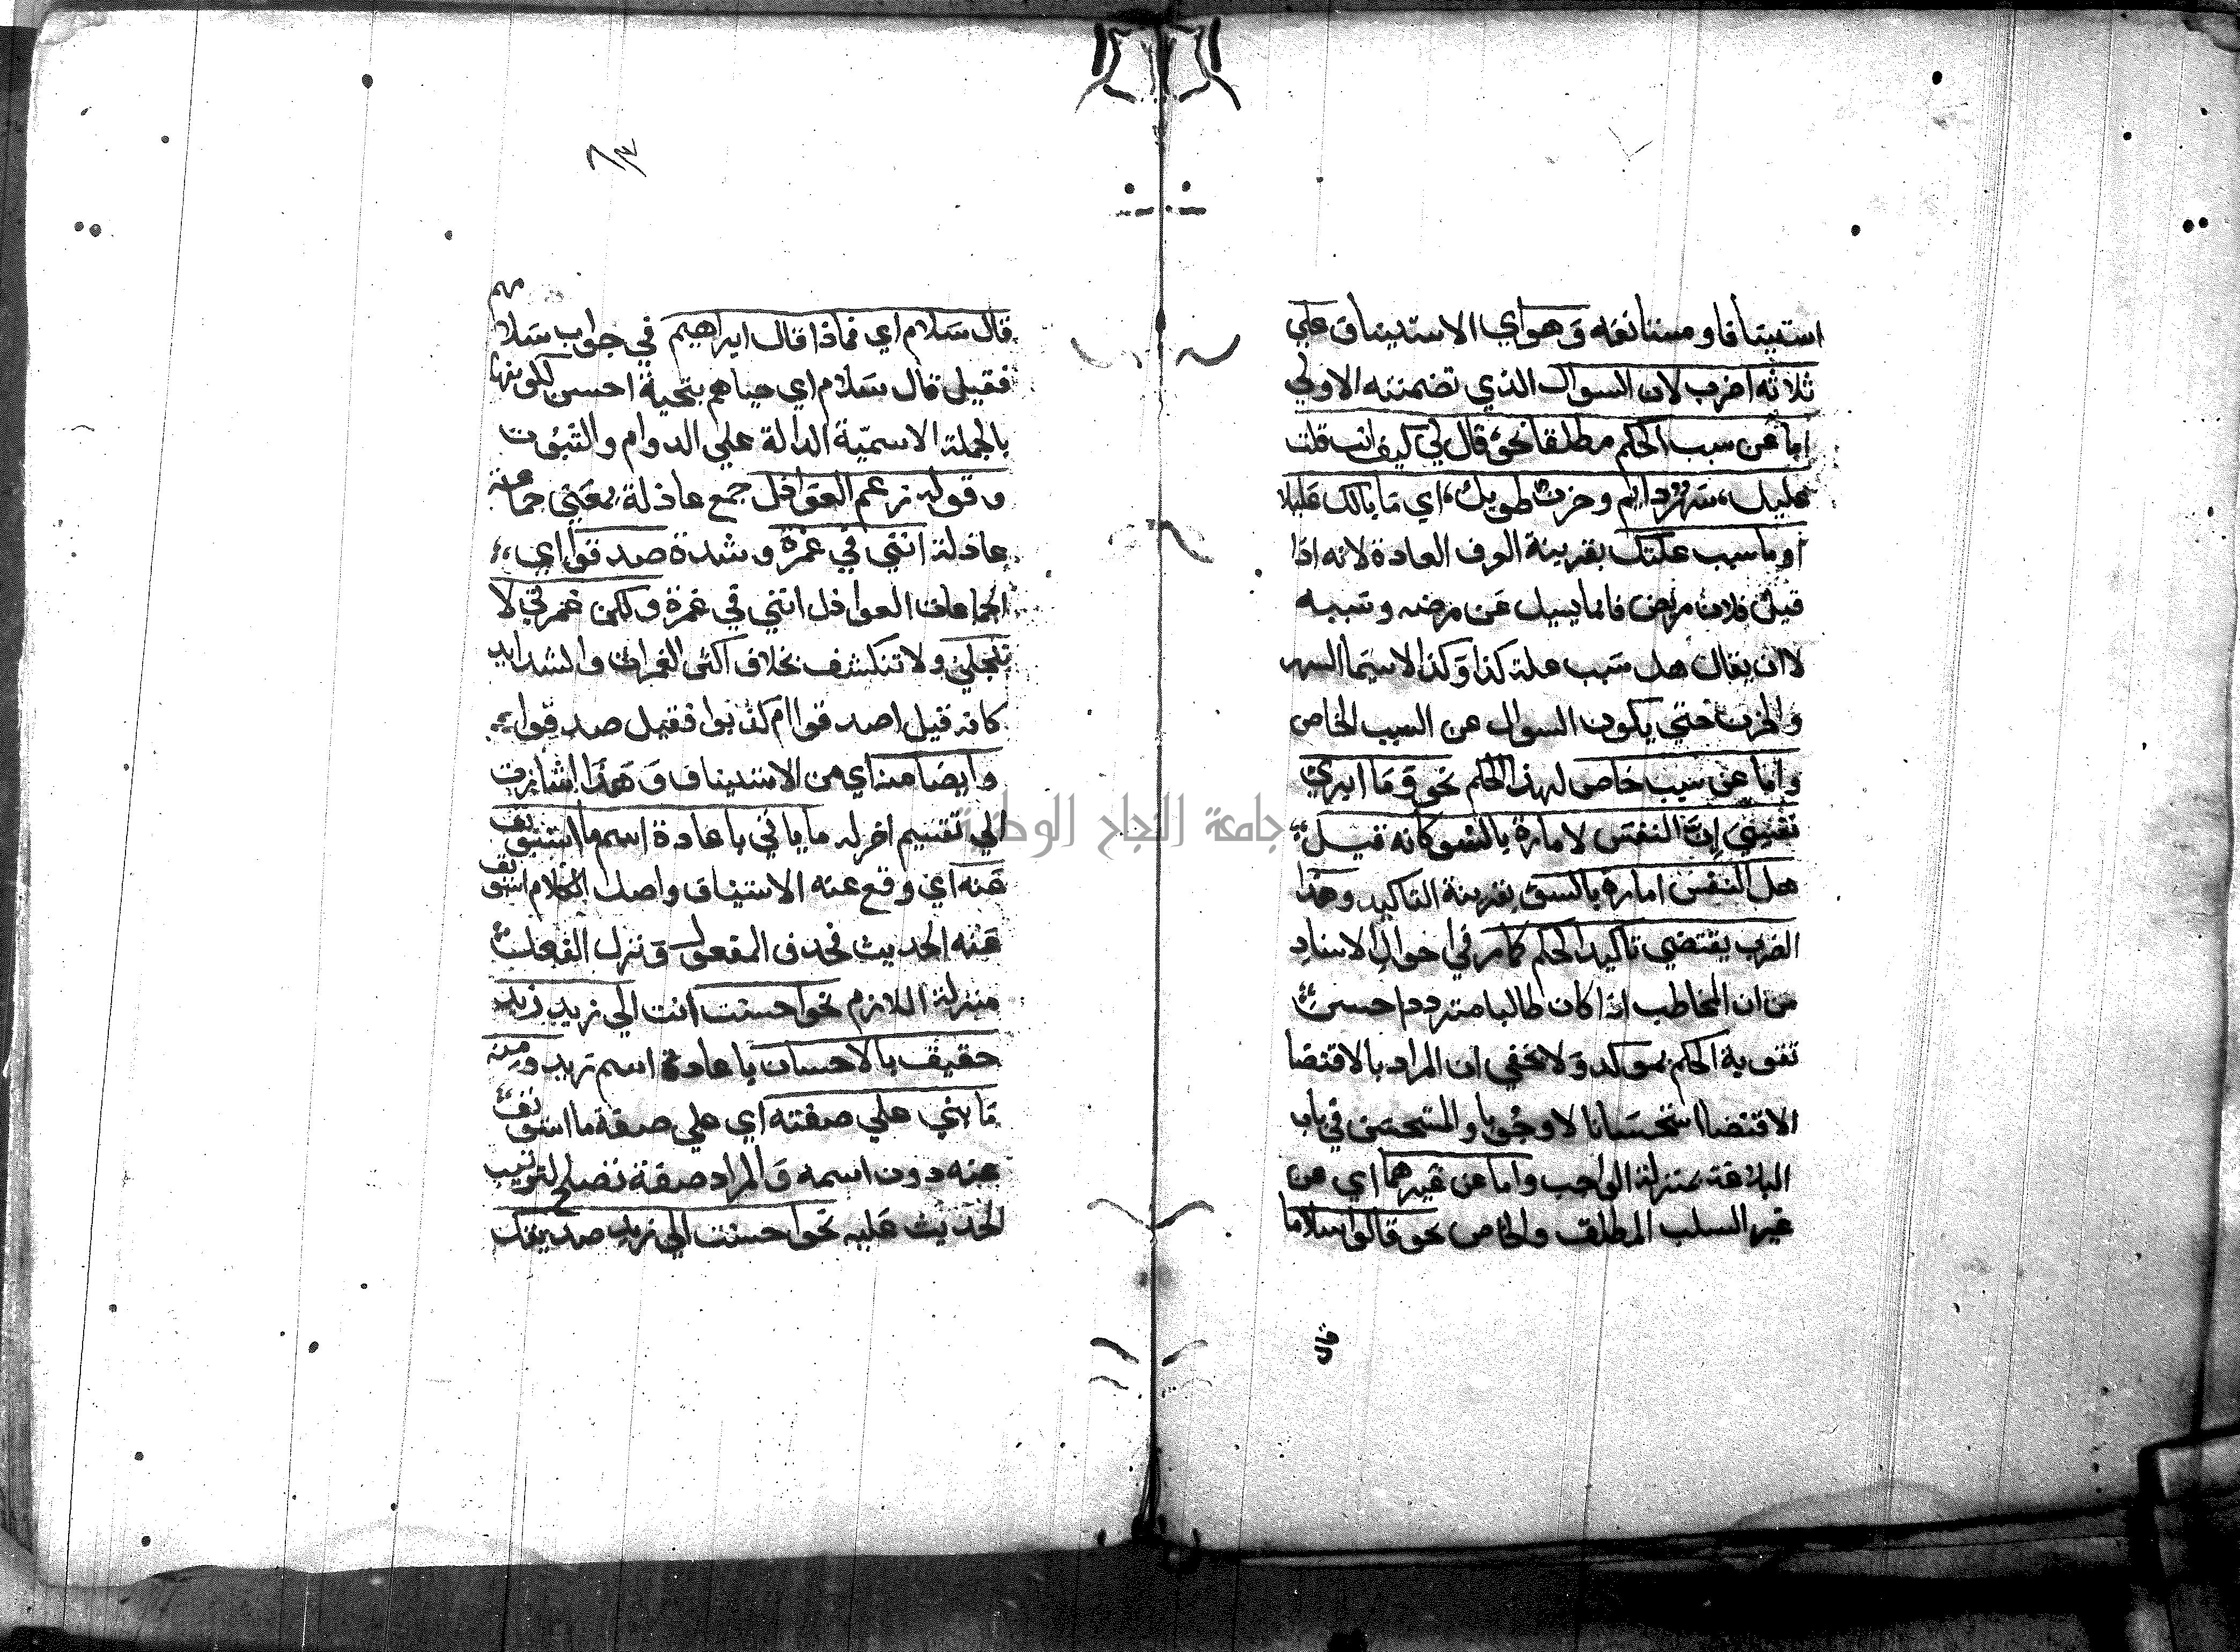 استينافا ومستانفه وهو اي الاستيناف علي
ثلاثه اضرب لان السوال الذي تضمنته الاولي
اما عن سبب الحكم مطلقا نحو قال لي كيف انت قلت
عليل سهر دائم وحزن طويل اي ما بالك عليلا
او ما سبب علتك بقرينة العرف العادة لانه اذا
قيل فلان مريض فانما يسيل عن مرضه وسببه
لا ان يقال هل سبب علته كذا وكذا لا سيما السهر
والحزن حتي يكون السوال عن السبب الخاص
واما عن سبب خاص لهذا الحكم نحو وما ابري
نفسي ان النفس لامارة بالسو كانه قيل
هل النفس امارة بالسو بقرينة التاكيد وهذا
الضرب يقتضي تاكيد الحكم كما مر في احوال الاسناد
من ان المخاطب اذا كان طالبا مترددا حسن
تقوية الحكم بموكد ولا يخفي ان المراد بالاقتضا
الاقتضا استحسانا لا وجوبا والمستحسن في باب
البلاغة بمنزلة الواجب واما عن غيرهما اي عن
غير السبب المطلق والخاص نحو قالوا سلاما
قال
قال سلام اي فماذا قال ابراهيم في جواب سلامهم
فقيل قال سلام اي حياهم بتحية احسن لكونها
بالجملة الاسمية الدالة علي الدوام والثبوت
وقوله زعم العواذل جمع عاذلة بمعني جماعة
عاذلة انني في غمرة وشدة صدقوا اي
الجماعات العواذل انني في غمرة ولكن غمرتي لا
تنجلي ولا تنكشف بخلاف اكثر الغمرات والشدايد
كانه قيل اصدقوا ام كذبوا فقيل صدقوا
وايضا منه اي من الاستيناف وهذا اشارت
الي تقسيم اخر له ما ياتي باعادة اسم ما استونف
عنه اي وقع عنه الاستيناف واصل الكلام استونف
عنه الحديث فحذف المفعول ونزل الفعل
منزلة اللازم نحو احسنت انت الي زيد زيد
حقيق بالاحسان باعادة اسم زيد ومنه
ما بني علي صفته اي علي صفة ما استونف
عنه دون اسمه والمراد صفة تصلح لترتيب
الحديث عليه نحو احسنت الي زيد صديقك
جامعة النجاح الوطنية